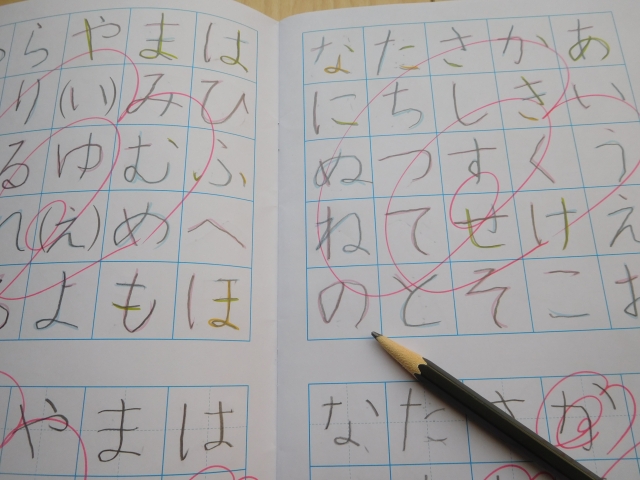 あいうえお
かきくけこ
さしすせそ
たちつてと
なにぬねの
はひふへほ
まみむめも
や(い)ゆ(え)よ
らりるれ
か
さ
た
な
は
ま
や